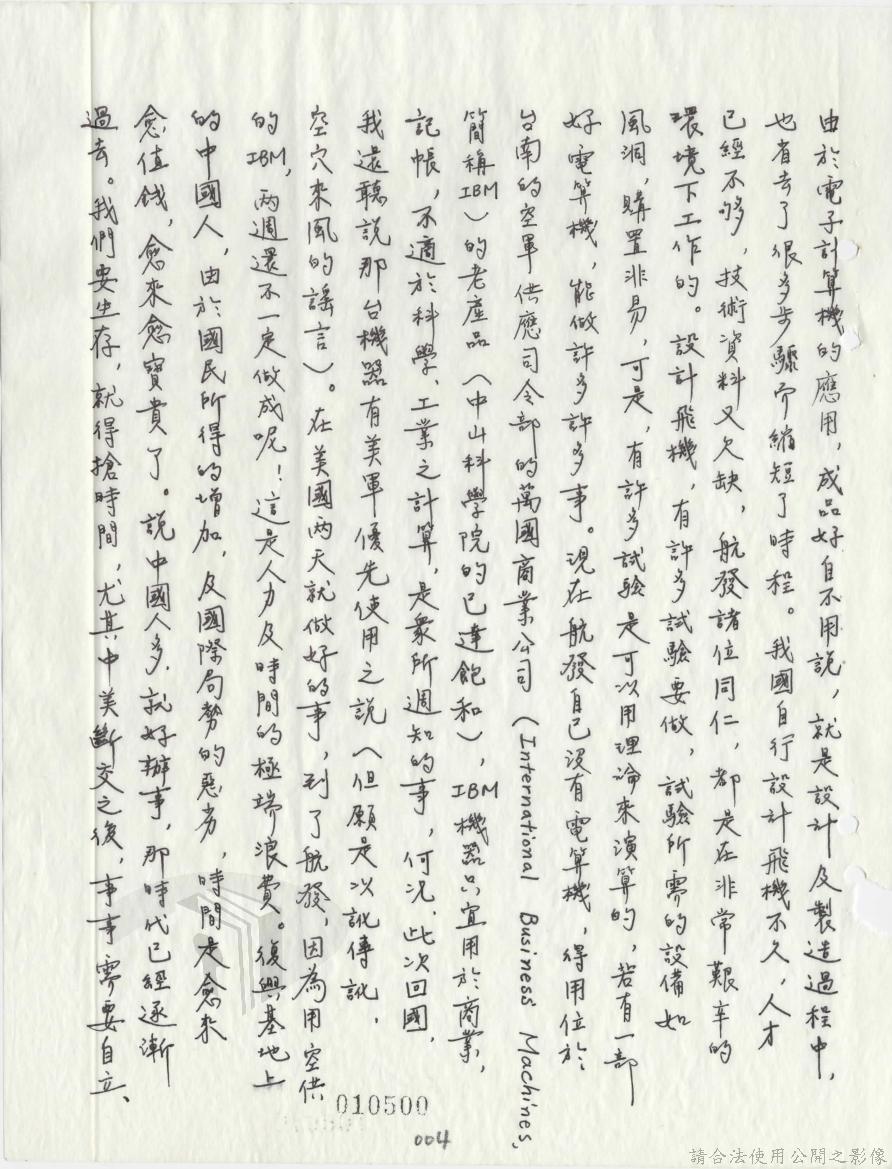 由於電子計算機的應用，成品好自不用說，就是設計及製造過程中，
也省去了很多步驟而縮短了時程。我國自行設計飛機不久，人才
已經不够，技術資料又欠缺，航發諸位同仁，都是在非常艱辛的
環境下工作的。設計飛機，有許多試驗要做，試驗所需的設備如
風洞，購置非易，可是，有許多試驗是可以用理論來演算的，若有一部
好電算機，能做許多許多事。現在航發自己沒有電算機，得用位於
台南的空軍供應司令部的萬國商業公司（International Business Machines,
簡稱IBM）的老產品（中山科學院的已達飽和），IBM機器只宜用於商業，
記帳，不適於科學、工業之計算，是衆所週知的事，何況，此次回國，
我還聽說那台機器有美軍優先使用之說（但願是以訛傳訛，
空穴來風的謠言）。在美國兩天就做好的事，到了航發，因為用空供
的IBM，兩週還不一定做成呢！這是人力及時間的極端浪費。復興基地上
的中國人，由於國民所得的增加，及國際局勢的惡劣，時間是愈來
愈值錢，愈來愈寶貴了。說中國人多，就好辦事，那時代已經逐漸
過去。我們要生存，就得搶時間，尤其中美斷交之後，事事需要自立、
010500
004
請合法使用公開之影像